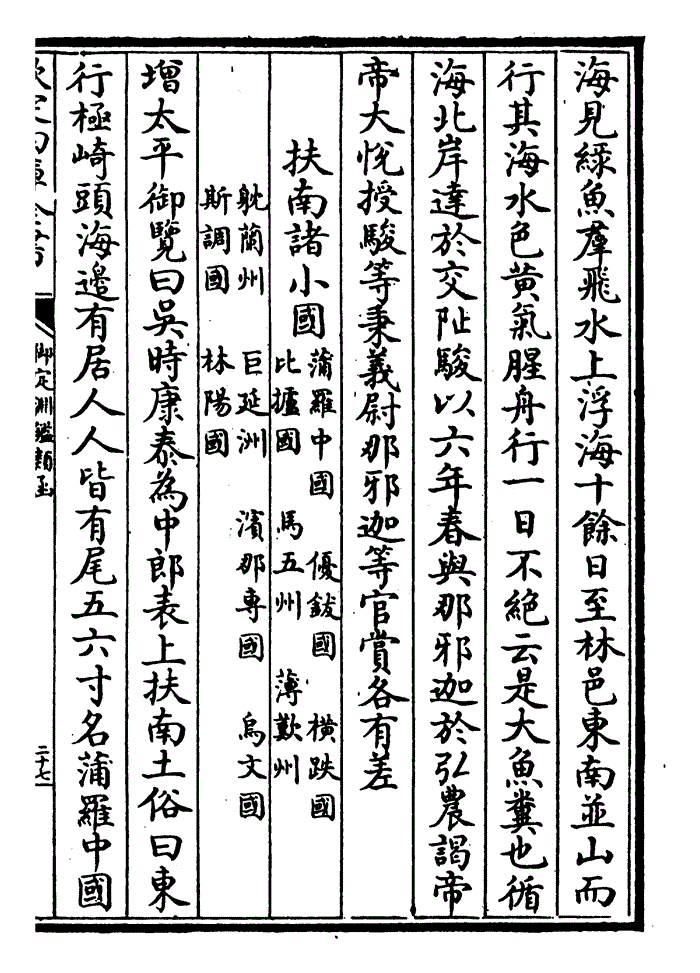 海見緑魚羣飛水上浮海十餘日至林邑東南並山而
行其海水色黄氣腥舟行一日不絶云是大魚糞也循
海北岸達於交阯駿以六年春與那邪迦於弘農謁帝
帝大悅授駿等秉義尉那邪迦等官賞各有差
扶南諸小國
蒲羅中國 優鈸國 横跌國
比攎國 馬五州 薄歎州
躭蘭州 巨延洲 濱那專國 烏文國
斯調國 林陽國
增太平御覽曰吳時康泰為中郎表上扶南土俗曰東
行極崎頭海邉有居人人皆有尾五六寸名蒲羅中國
欽定四庫全書
御定淵鑑類函
二十七